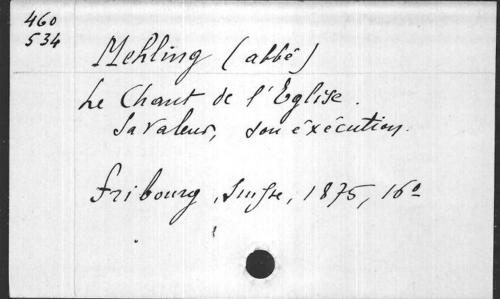 460
534
Mehling (abbé)
Le Chant de l'Eglise.
Sa valeur, son éxécution.
Fribourg, Suisse, 1875, 16°